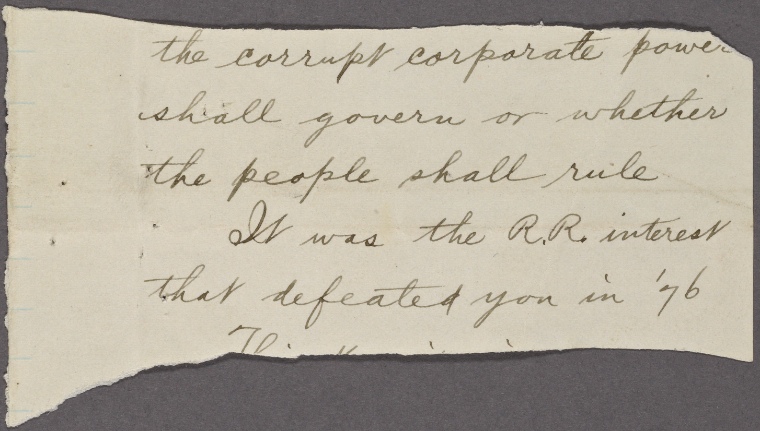 the corrupt corporate power
shall govern or whether
the people shall rule
It was the R.R. interest
that defeated you in '76